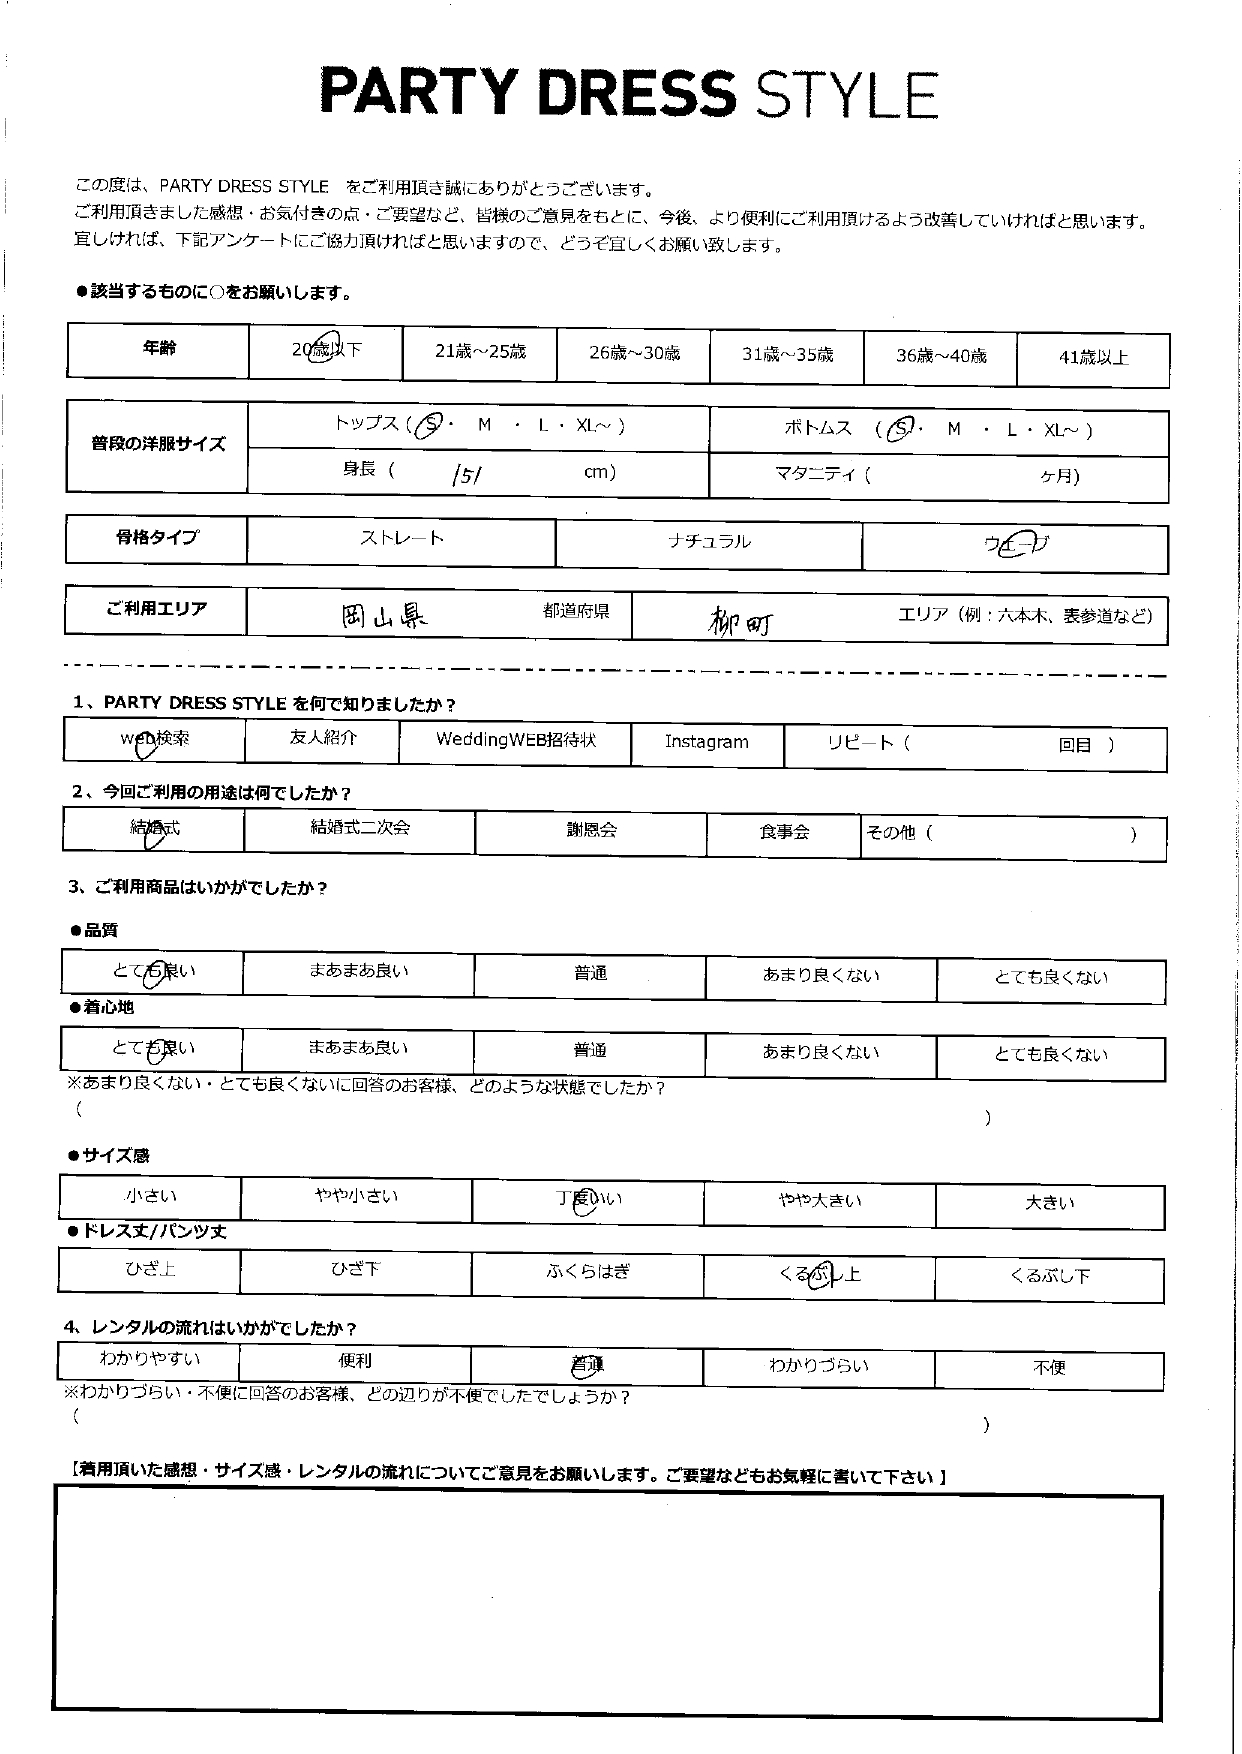 PARTY DRESS STYLE
この度は、PARTY DRESS STYLE をご利用頂き誠にありがとうございます。
ご利用頂きました感想・お気付きの点・ご要望など、皆様のご意見をもとに、今後、より便利にご利用頂けるよう改善していければと思います。
宜しければ、下記アンケートにご協力頂ければと思いますので、どうぞ宜しくお願い致します。
●該当するものに○をお願いします。
年齢 20歳以下 21歳～25歳 26歳～30歳 31歳～35歳 36歳～40歳 41歳以上
普段の洋服サイズ トップス (S・ M ・ L・ XL～ ) ボトムス (S・ M ・ L・ XL～ )
身長 ( 151 cm) マタニティ ( ケ月)
骨格タイプ ストレート ナチュラル ウェーブ
ご利用エリア 岡山県 都道府県 柳町 エリア（例：六本木、表参道など）
1、PARTY DRESS STYLE を何で知りましたか？
web検索 友人紹介 WeddingWEB招待状 Instagram リピート ( 回目 )
2、今回ご利用の用途は何でしたか？
結婚式 結婚式二次会 謝恩会 食事会 その他 ( )
3、ご利用商品はいかがでしたか？
●品質
とても良い まあまあ良い 普通 あまり良くない とても良くない
●着心地
とても良い まあまあ良い 普通 あまり良くない とても良くない
※あまり良くない・とても良くないに回答のお客様、どのような状態でしたか？
( )
●サイズ感
小さい やや小さい 丁度いい やや大きい 大きい
●ドレス丈/パンツ丈
ひざ上 ひざ下 ふくらはぎ くるぶし上 くるぶし下
4、レンタルの流れはいかがでしたか？
わかりやすい 便利 普通 わかりづらい 不便
※わかりづらい・不便に回答のお客様、どの辺りが不便でしたでしょうか？
( )
【着用頂いた感想・サイズ感・レンタルの流れについてご意見をお願いします。ご要望などもお気軽に書いて下さい 】